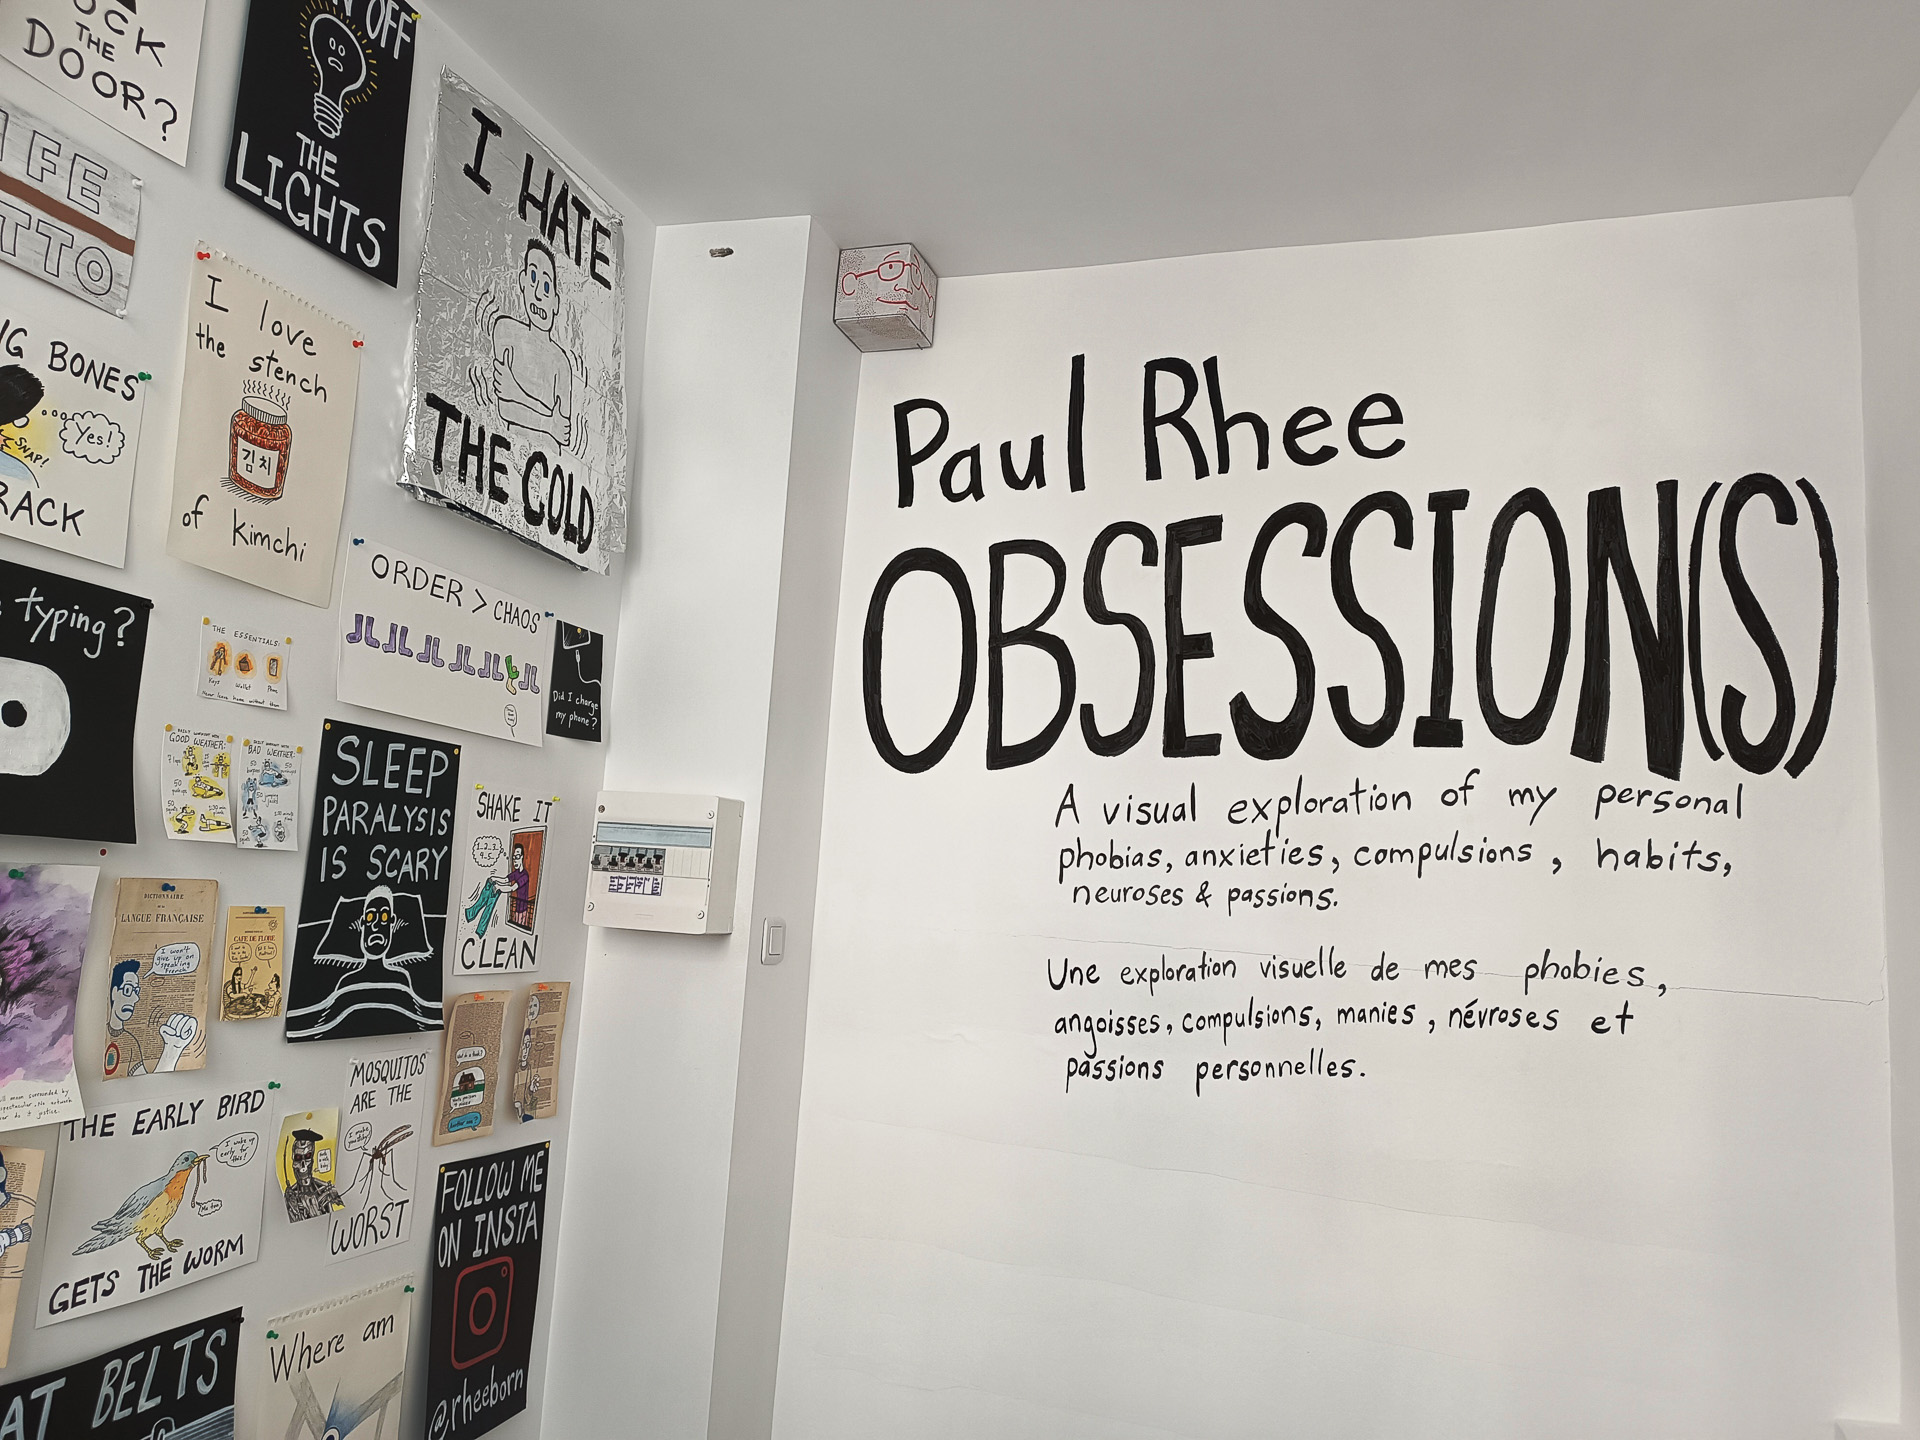 THE
DOOR?
OFF
THE
LIGHTS
I HATE
THE COLD
TTO
I love
the stench
김치
of kimchi
BONES
Yes!
SNAP!
RACK
ORDER > CHAOS
typing?
THE ESSENTIALS:
Keys
Wallet
Phone
Never leave home without them
Did I charge
my phone?
GOOD WEATHER:
BAD WEATHER:
SLEEP
PARALYSIS
IS SCARY
SHAKE IT
1..2..3..
4..5..
CLEAN
DICTIONNAIRE
DE LA
LANGUE FRANÇAISE
I won't
give up on
speaking
French
CAFE DE FLORE
THE EARLY BIRD
I wake up
early for
this!
Me too
GETS THE WORM
MOSQUITOS
ARE THE
WORST
FOLLOW ME
ON INSTA
@rheeborn
AT BELTS
Where am
Paul Rhee
OBSESSION(S)
A visual exploration of my personal
phobias, anxieties, compulsions, habits,
neuroses & passions.
Une exploration visuelle de mes phobies,
angoisses, compulsions, manies, névroses et
passions personnelles.